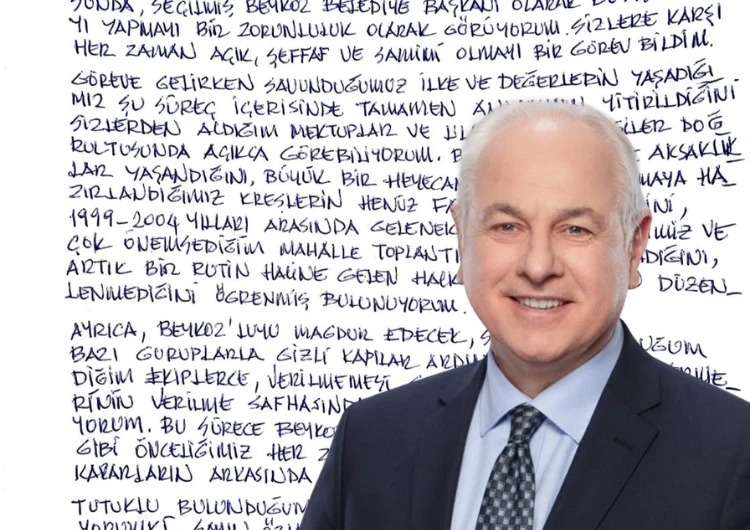 SUNDA, SEÇİLMİŞ BEYKOZ BELEDİYE BAŞKANI OLARAK
YI YAPMAYI BİR ZORUNLULUK OLARAK GÖRÜYORUM. SİZLERE KARŞI
HER ZAMAN AÇIK, ŞEFFAF VE SAMİMİ OLMAYI BİR GÖREV BİLDİM.
GÖREVE GELİRKEN SAVUNDUĞUMUZ İLKE VE DEĞERLERİN YAŞADIĞI
MIZ ŞU SÜREÇ İÇERİSİNDE TAMAMEN YİTİRİLDİĞİNİ
SİZLERDEN ALDIĞIM MEKTUPLAR VE DOĞ
RULTUSUNDA AÇIKÇA GÖREBİLİYORUM. AKSAKLIK
LAR YAŞANDIĞINI, BÜYÜK BİR HEYECAN MAYA HA
ZIRLANDIĞIMIZ KREŞLERİN HENÜZ İNİ,
1999-2004 YILLARI ARASINDA GELENEK MİZ VE
ÇOK ÖNEMSEDİĞİM MAHALLE TOPLANTI DIĞINI,
ARTIK BİR RUTİN HALİNE GELEN HALK DÜZEN
LENMEDİĞİNİ ÖĞRENMİŞ BULUNUYORUM.
AYRICA, BEYKOZ'LUYU MAĞDUR EDECEK, UĞUM
BAZI GURUPLARLA GİZLİ KAPILAR ARDIN
DİĞİM EKİPLERCE, VERİLMEMESİ
RİNİN VERİLME SAFHASIND
YORUM. BU SÜRECE BEYKO
GİBİ ÖNCELİĞİMİZ HER
KARARLARIN ARKASINDA
TUTUKLU BULUNDUĞUM